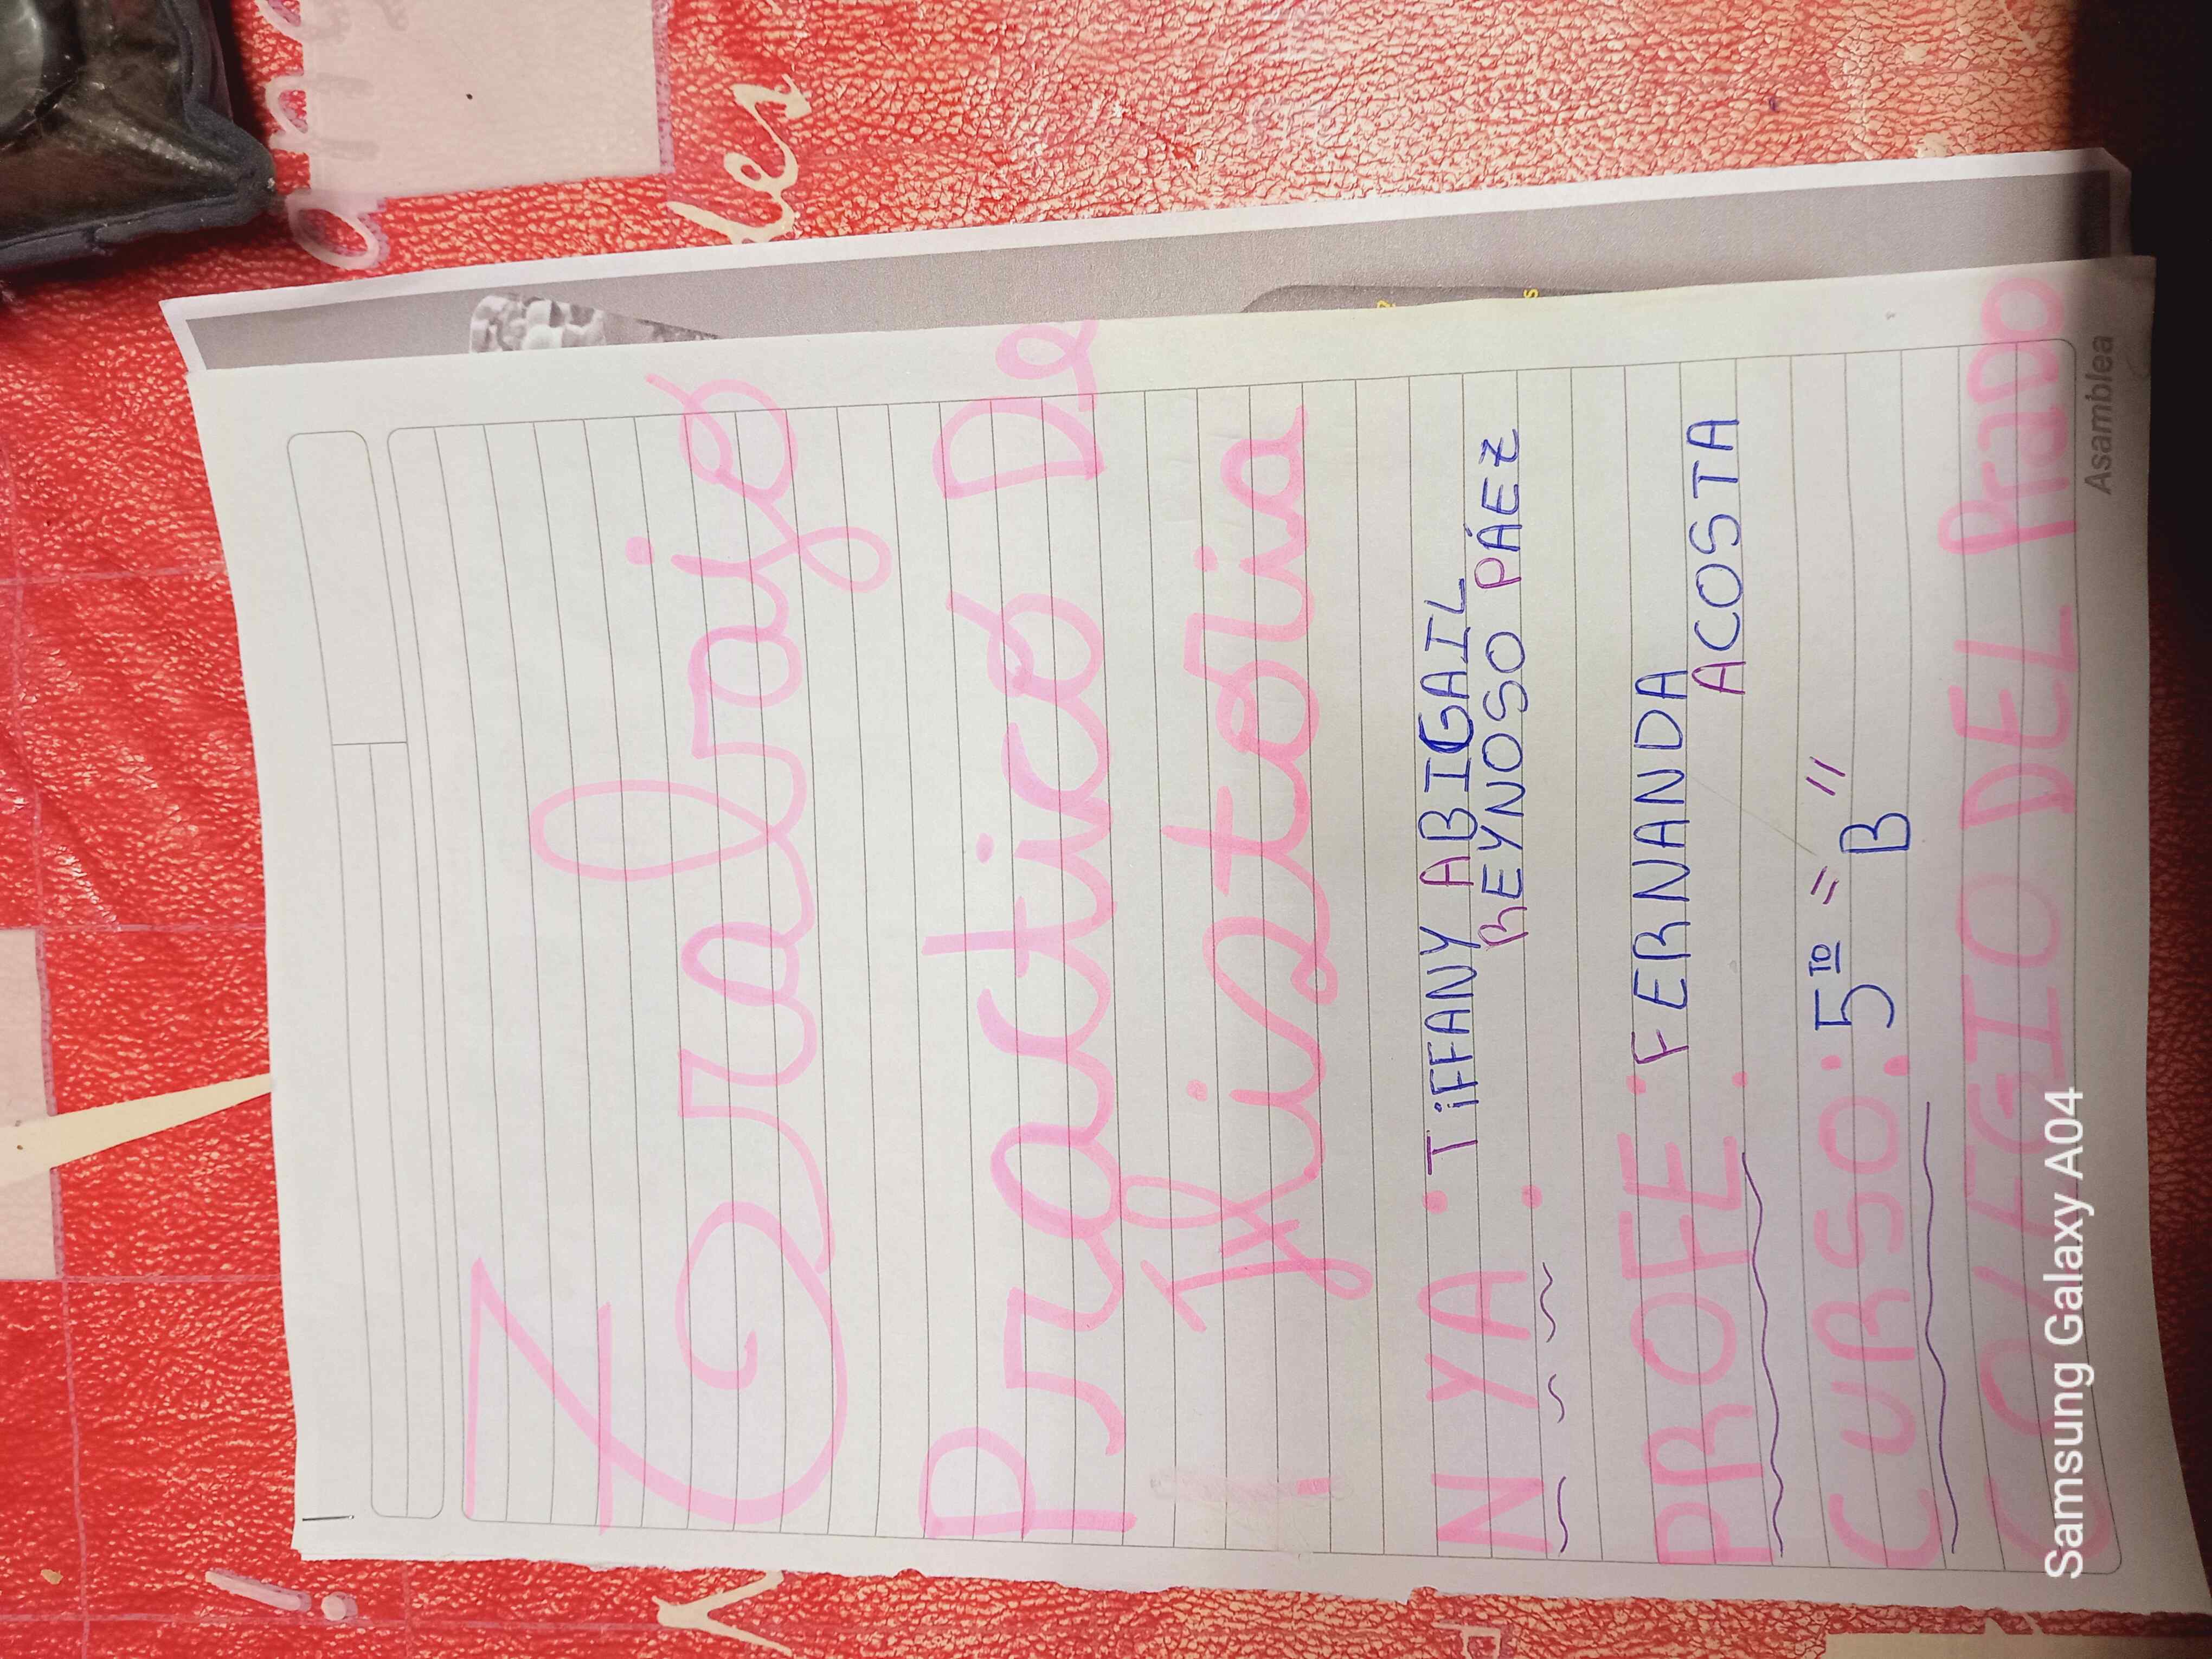 Trabajo
Practico De
Historia
N YA: TiFFANY ABIGAIL
REYNOSO PÁEZ
PROFE: FERNANDA
ACOSTA
CURSO: 5TO "B"
COLEGIO DEL PraDO
Asamblea
Samsung Galaxy A04